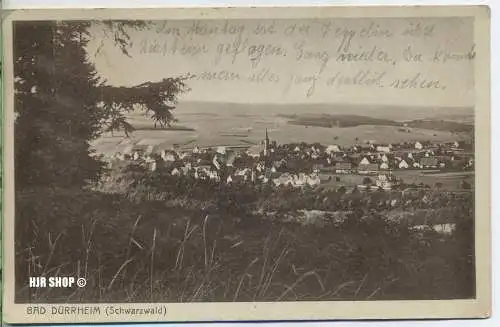 den Montag ist der Zeppelin über
Dürrheim geflogen. Ganz nieder. Da konnte
man alles ganz deutlich sehen.
HJR SHOP ©
BAD DÜRRHEIM (Schwarzwald)